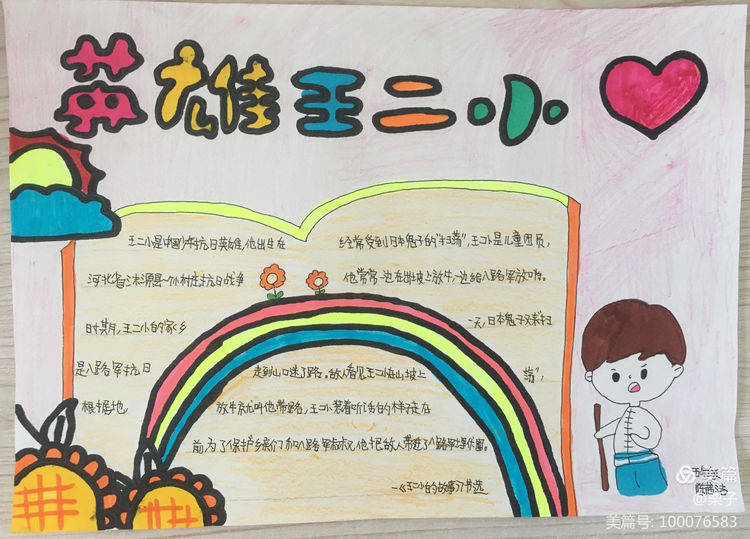 英雄王二小
王二小是中国少年抗日英雄,他出生在
河北省涞源县一个村庄抗日战争
时期,王二小的家乡
是八路军抗日
根据地,
经常受到日本鬼子的“扫荡”,王二小是儿童团员,
他常常一边在山坡上放牛,一边给八路军放哨。
一天,日本鬼子又来扫
荡”,
走到山口迷了路。敌人看见王二小在山坡上
放牛就叫他带路,王二小装着听话的样子走在
前,为了保护乡亲们和八路军,他把敌人带进了八路军埋伏圈。
—《王二小的故事》节选
美篇
@栗子
美篇号: 100076583